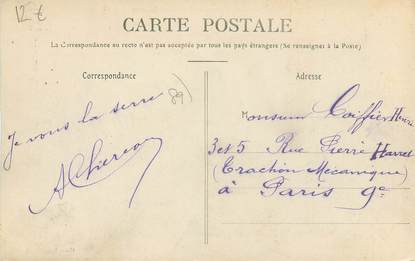 12 €
CARTE POSTALE
La Correspondance au recto n'est pas acceptée par tous les pays étrangers (Se renseigner à la Poste)
Correspondance
Adresse
Je vous la serre
89
Monsieur Coiffier Henri
3 et 5 Rue Pierre Haret
(Traction Mecanique)
à Paris 9e